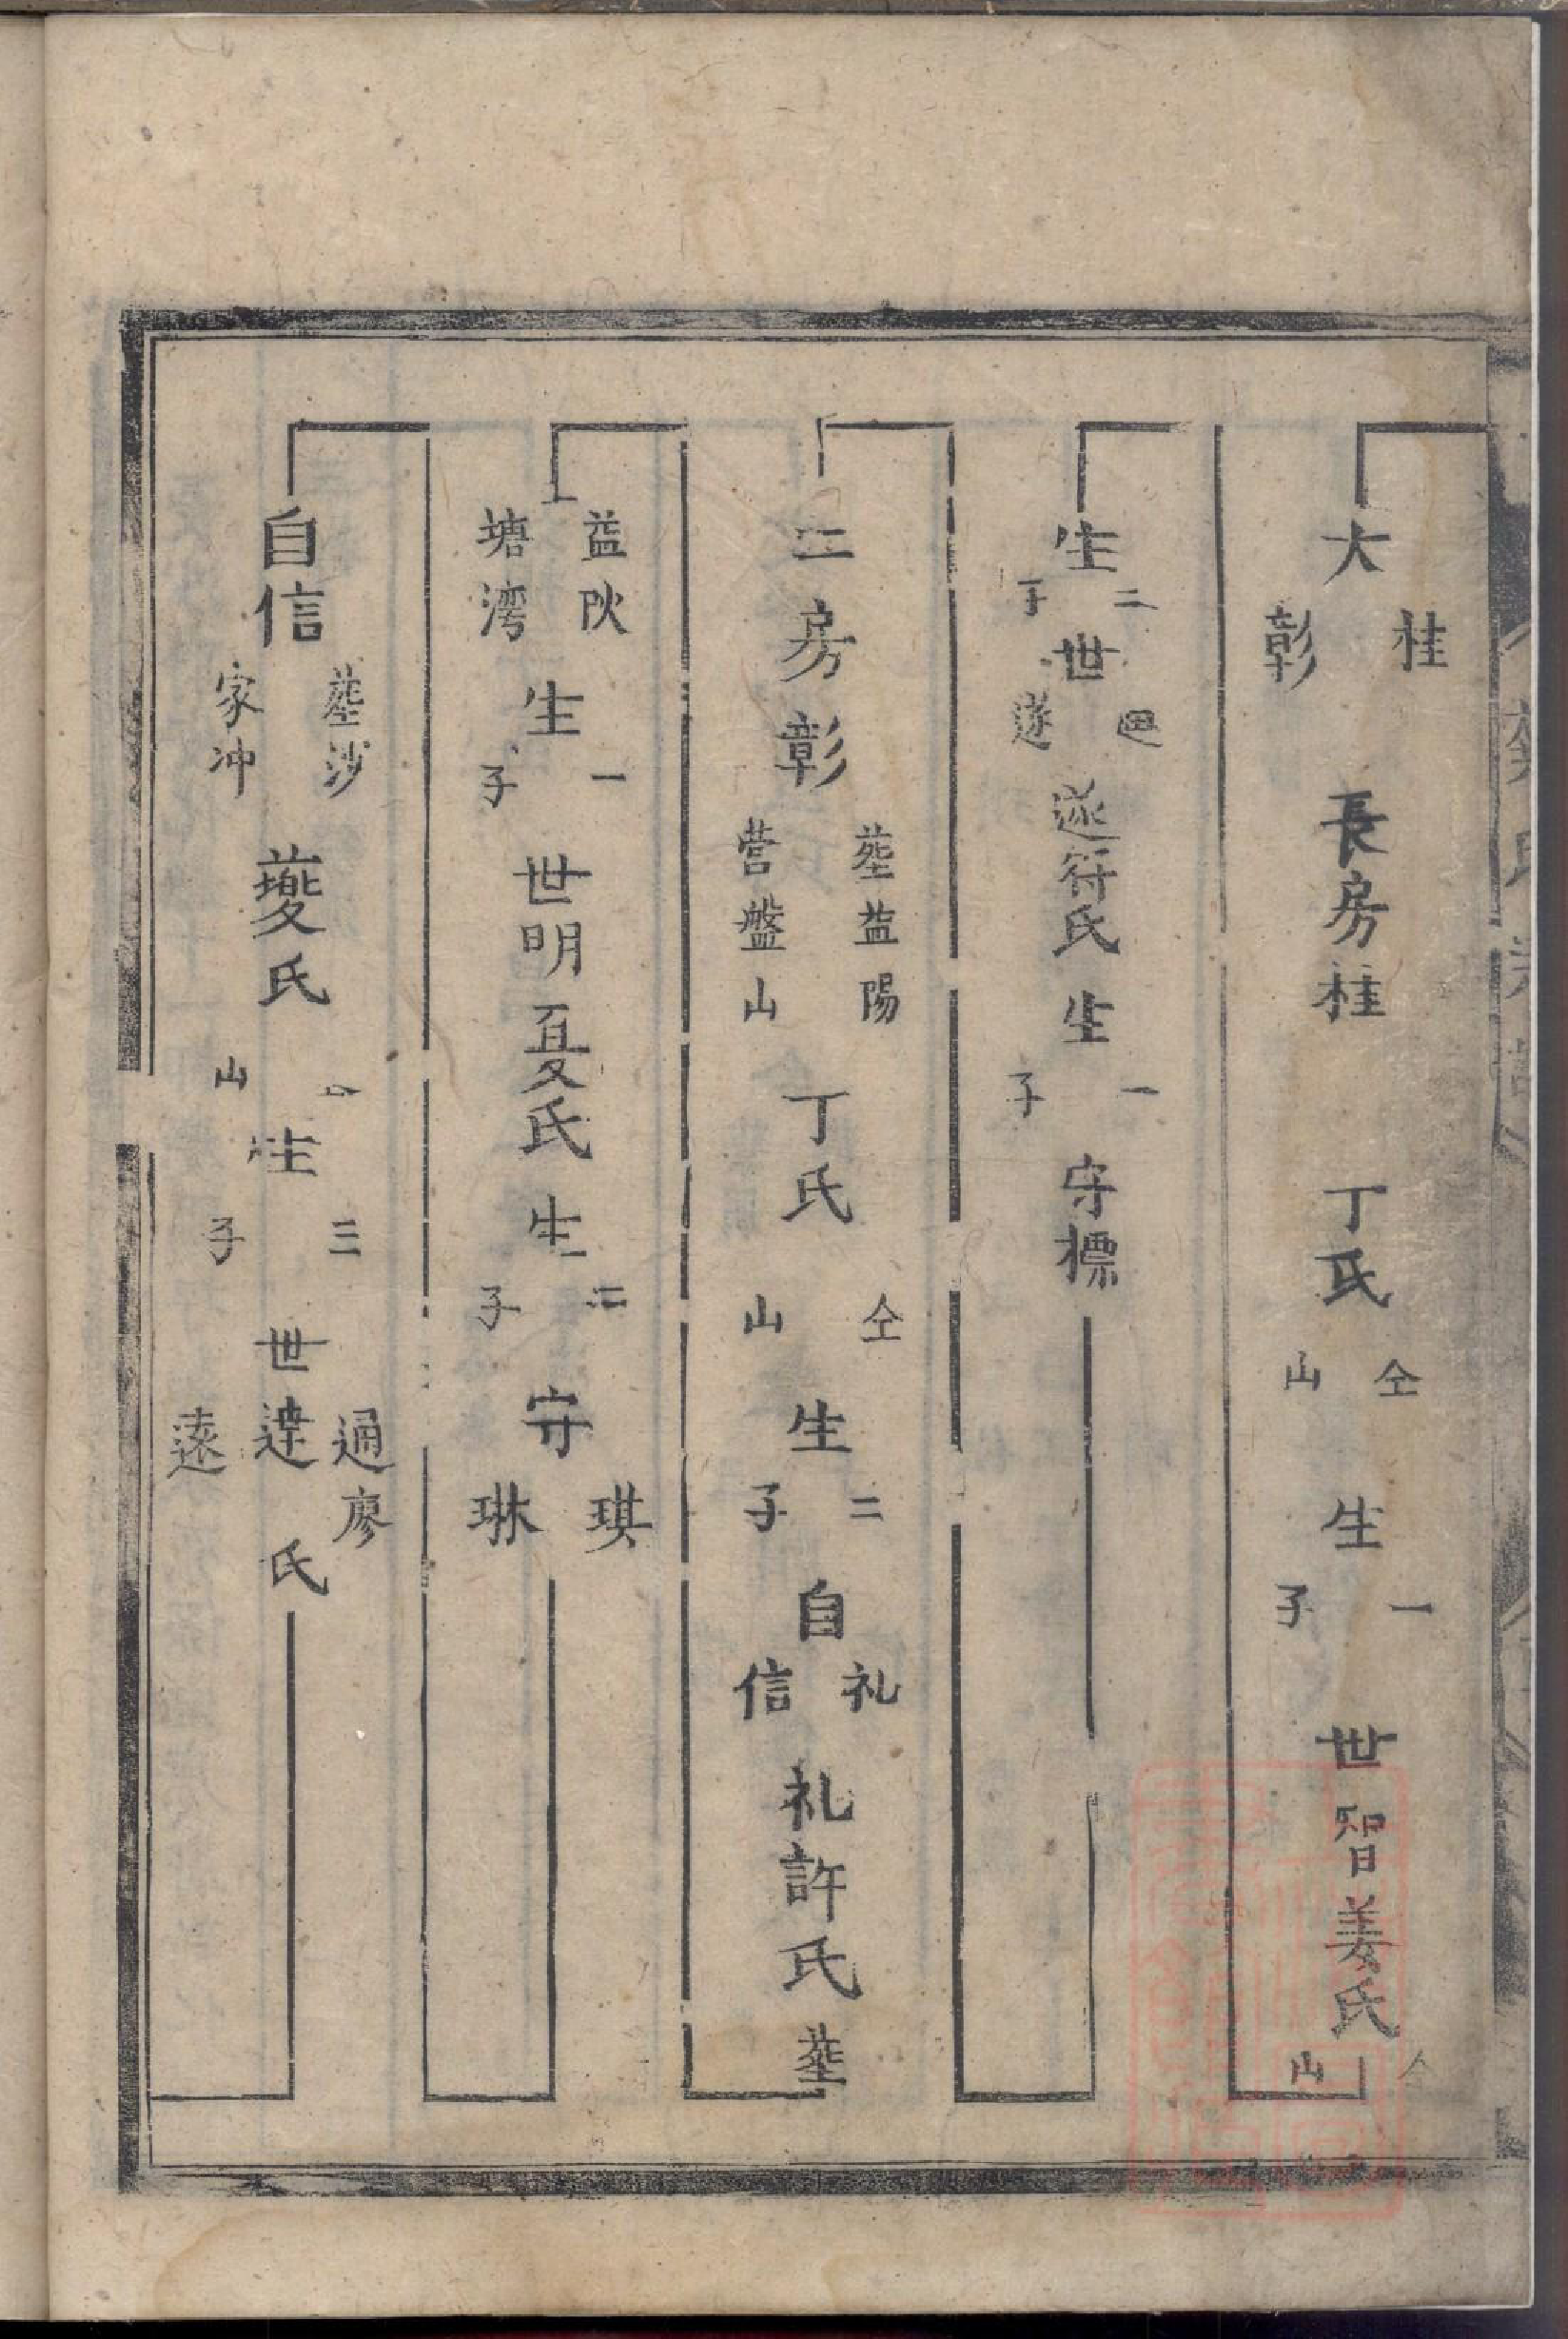 大桂彰 長房桂 丁氏仝山 生一子 世智姜氏仝山
生二子 世遂 遂符氏生一子 守標
二房彰塟益陽營盤山 丁氏仝山 生二子 自礼信 礼許氏塟
益陽塘湾 生一子 世明夏氏生二子 守琪琳
自信塟沙家冲 夔氏仝山 生三子 世通達遠 廖氏